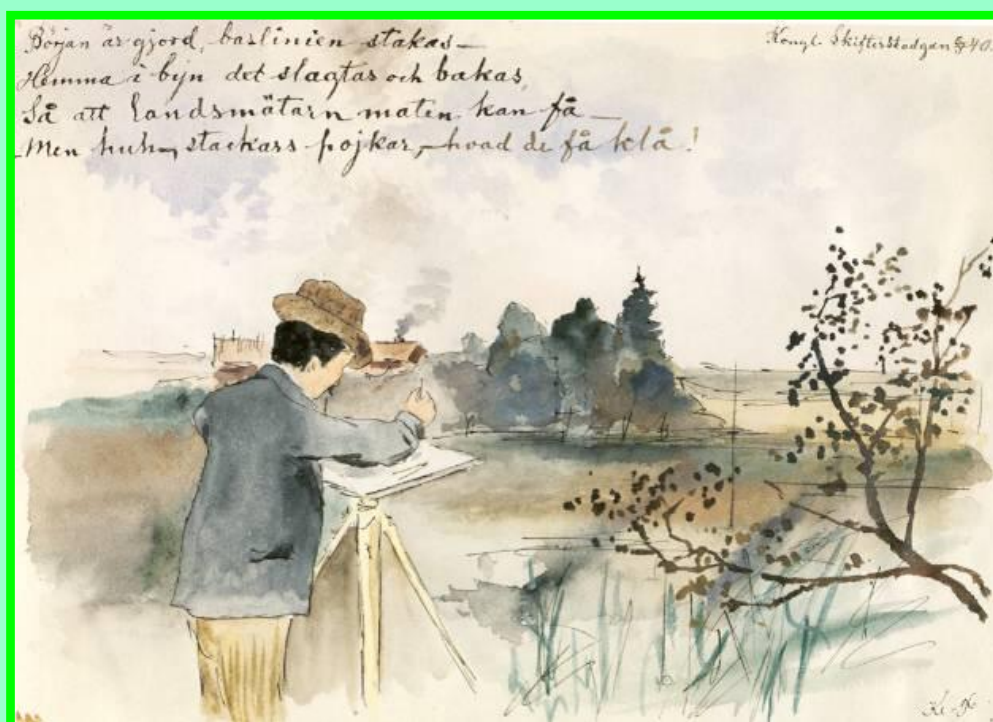 Början är gjord, baslinien stakas—
Hemma i byn det slagtas och bakas,
Så att Landsmätarn maten kan få—
Men huh, stackars pojkar,—hvad de få klå!
Kongl. Skiftesstadgan § 40.